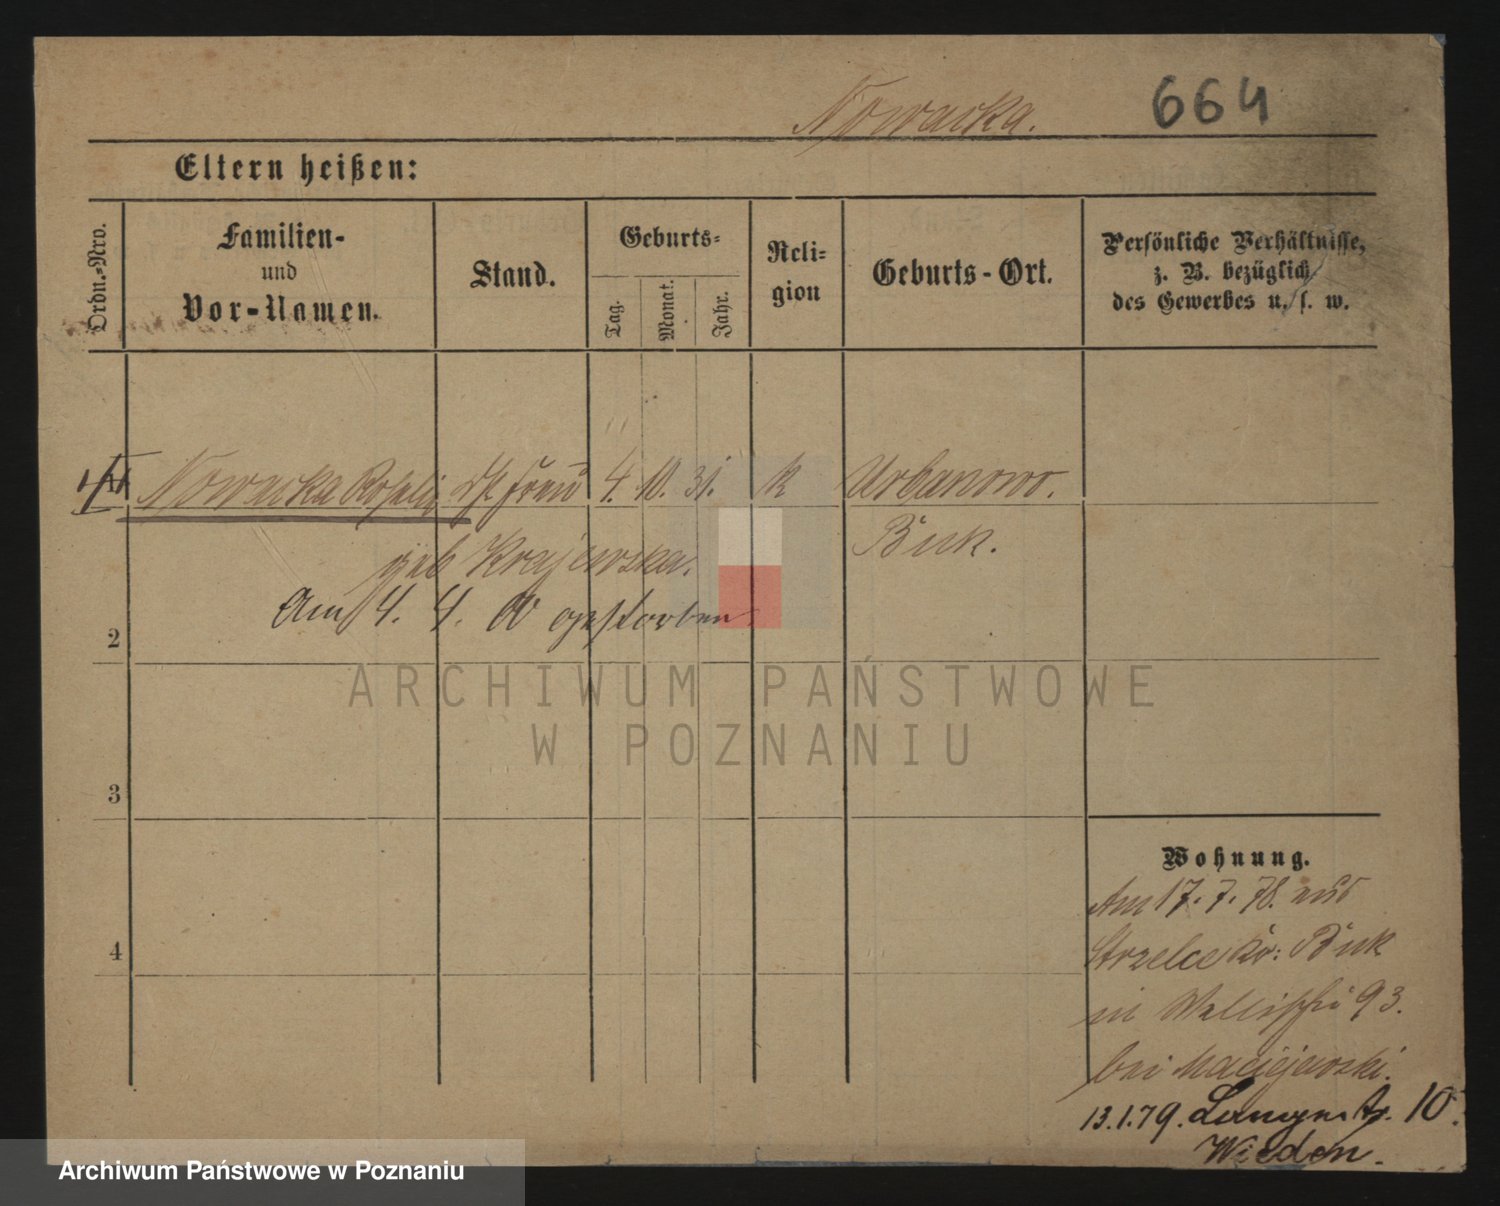 Nowacka.
664
Eltern heißen:
Ordn.-Nro.
Familien-
und
Vor-Namen.
Stand.
Geburts-
Tag.
Monat.
Jahr.
Reli-
gion
Geburts-Ort.
Persönliche Verhältnisse,
z. B. bezüglich
des Gewerbes u. s. w.
Nowacka Rosalie
4. 10. 31. k Urbanowo.
geb Krajewska. Buk.
Am 4. 4. 00 gestorben
2
3
4
Wohnung.
Am 17. 7. 78. aus
Strzelce Kr: Buk
in Wallischei 93.
bei Maciejewski.
13.1.79. Langestr. 10.
Wieden.
ARCHIWUM PAŃSTWOWE
W POZNANIU
Archiwum Państwowe w Poznaniu